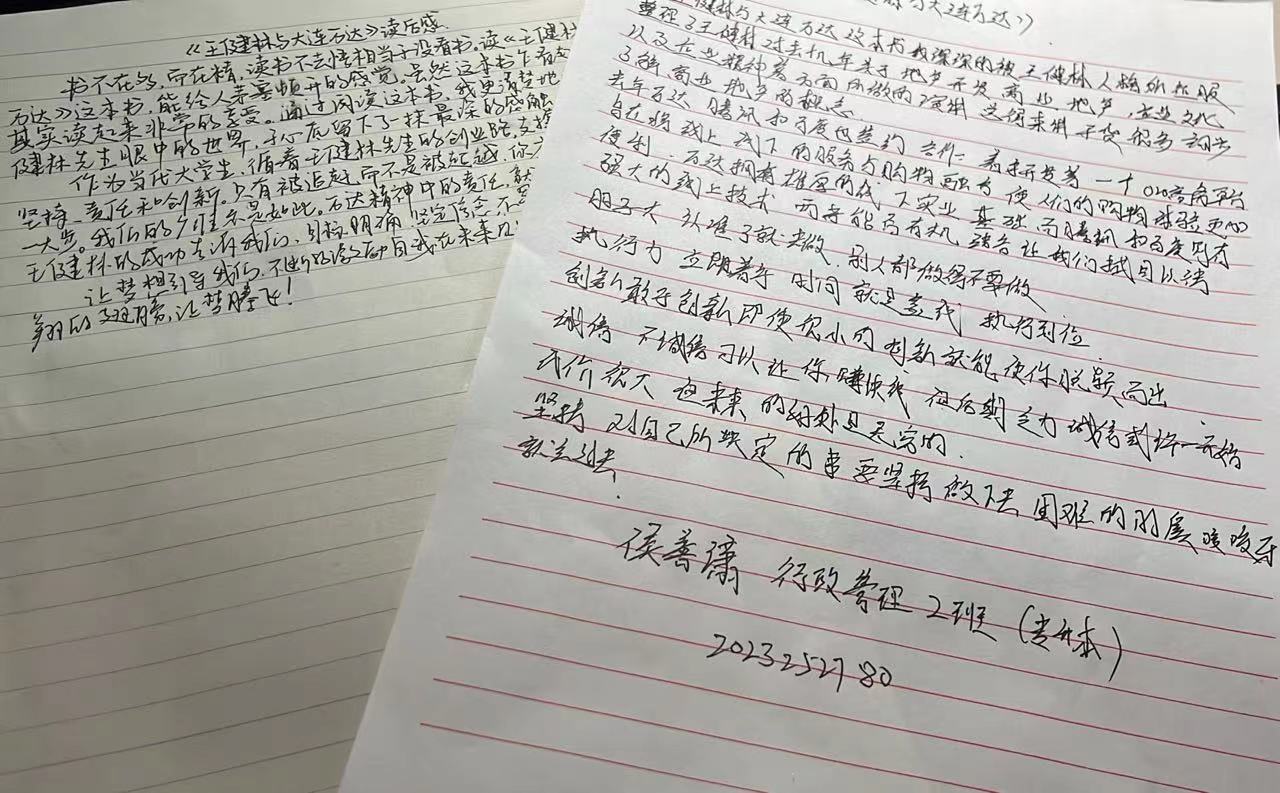 《王健林与大连万达》读后感
书不在多,而在精,读书不去悟相当于没看书,读《王健林
万达》这本书,能给人茅塞顿开的感觉。虽然这本书乍看
其实读起来非常的享受。通过阅读这本书,我更清楚地
健林先生眼中的世界,于心底留下了抹最深的感触
作为当代大学生,循着王健林先生的创业路,支撑
坚持、责任和创新。只有被追赶,而不是被超越,你
一大步。我们的今生亦是如此。万达精神中的责任
王健林的成功告诉我们,目标明确,坚定信念,不
让梦想引导我们,不断的论证自我在未来
翔的翅膀,让梦腾飞!
与大连万达》
健林与大连万达这本书我深深的被王健林人格所折服
整理了王健林过去几年关于地产开发商业地产,企业文化
以及企业精神等方面所做的演讲 这份来料干货很多 初步
了解商业地产的概念
去年万达 腾讯和百度也签约合作 着手开发第一个O2O电商平台
旨在将线上线下的服务与购物融合 使人们的购物体验更加
便利. 万达拥有雄厚的线下实业基础 而腾讯和百度则有
强大的线上技术 两者能否有机结合让我们拭目以待
胆子大 认准了就去做. 别人都做得不要做
执行力 立即着手 时间就是金钱 执行到位.
创新 敢于创新 即使很小的创新就能使你脱颖而出
诚信 不诚信可以让你赚快钱 但后期乏力 诚信或许一开始
代价很大 但未来的好处是无穷的.
坚持 对自己所决定的事要坚持做下去 困难的时候咬咬牙
就过去.
侯善潇 行政管理2班(专升本)
2023252780